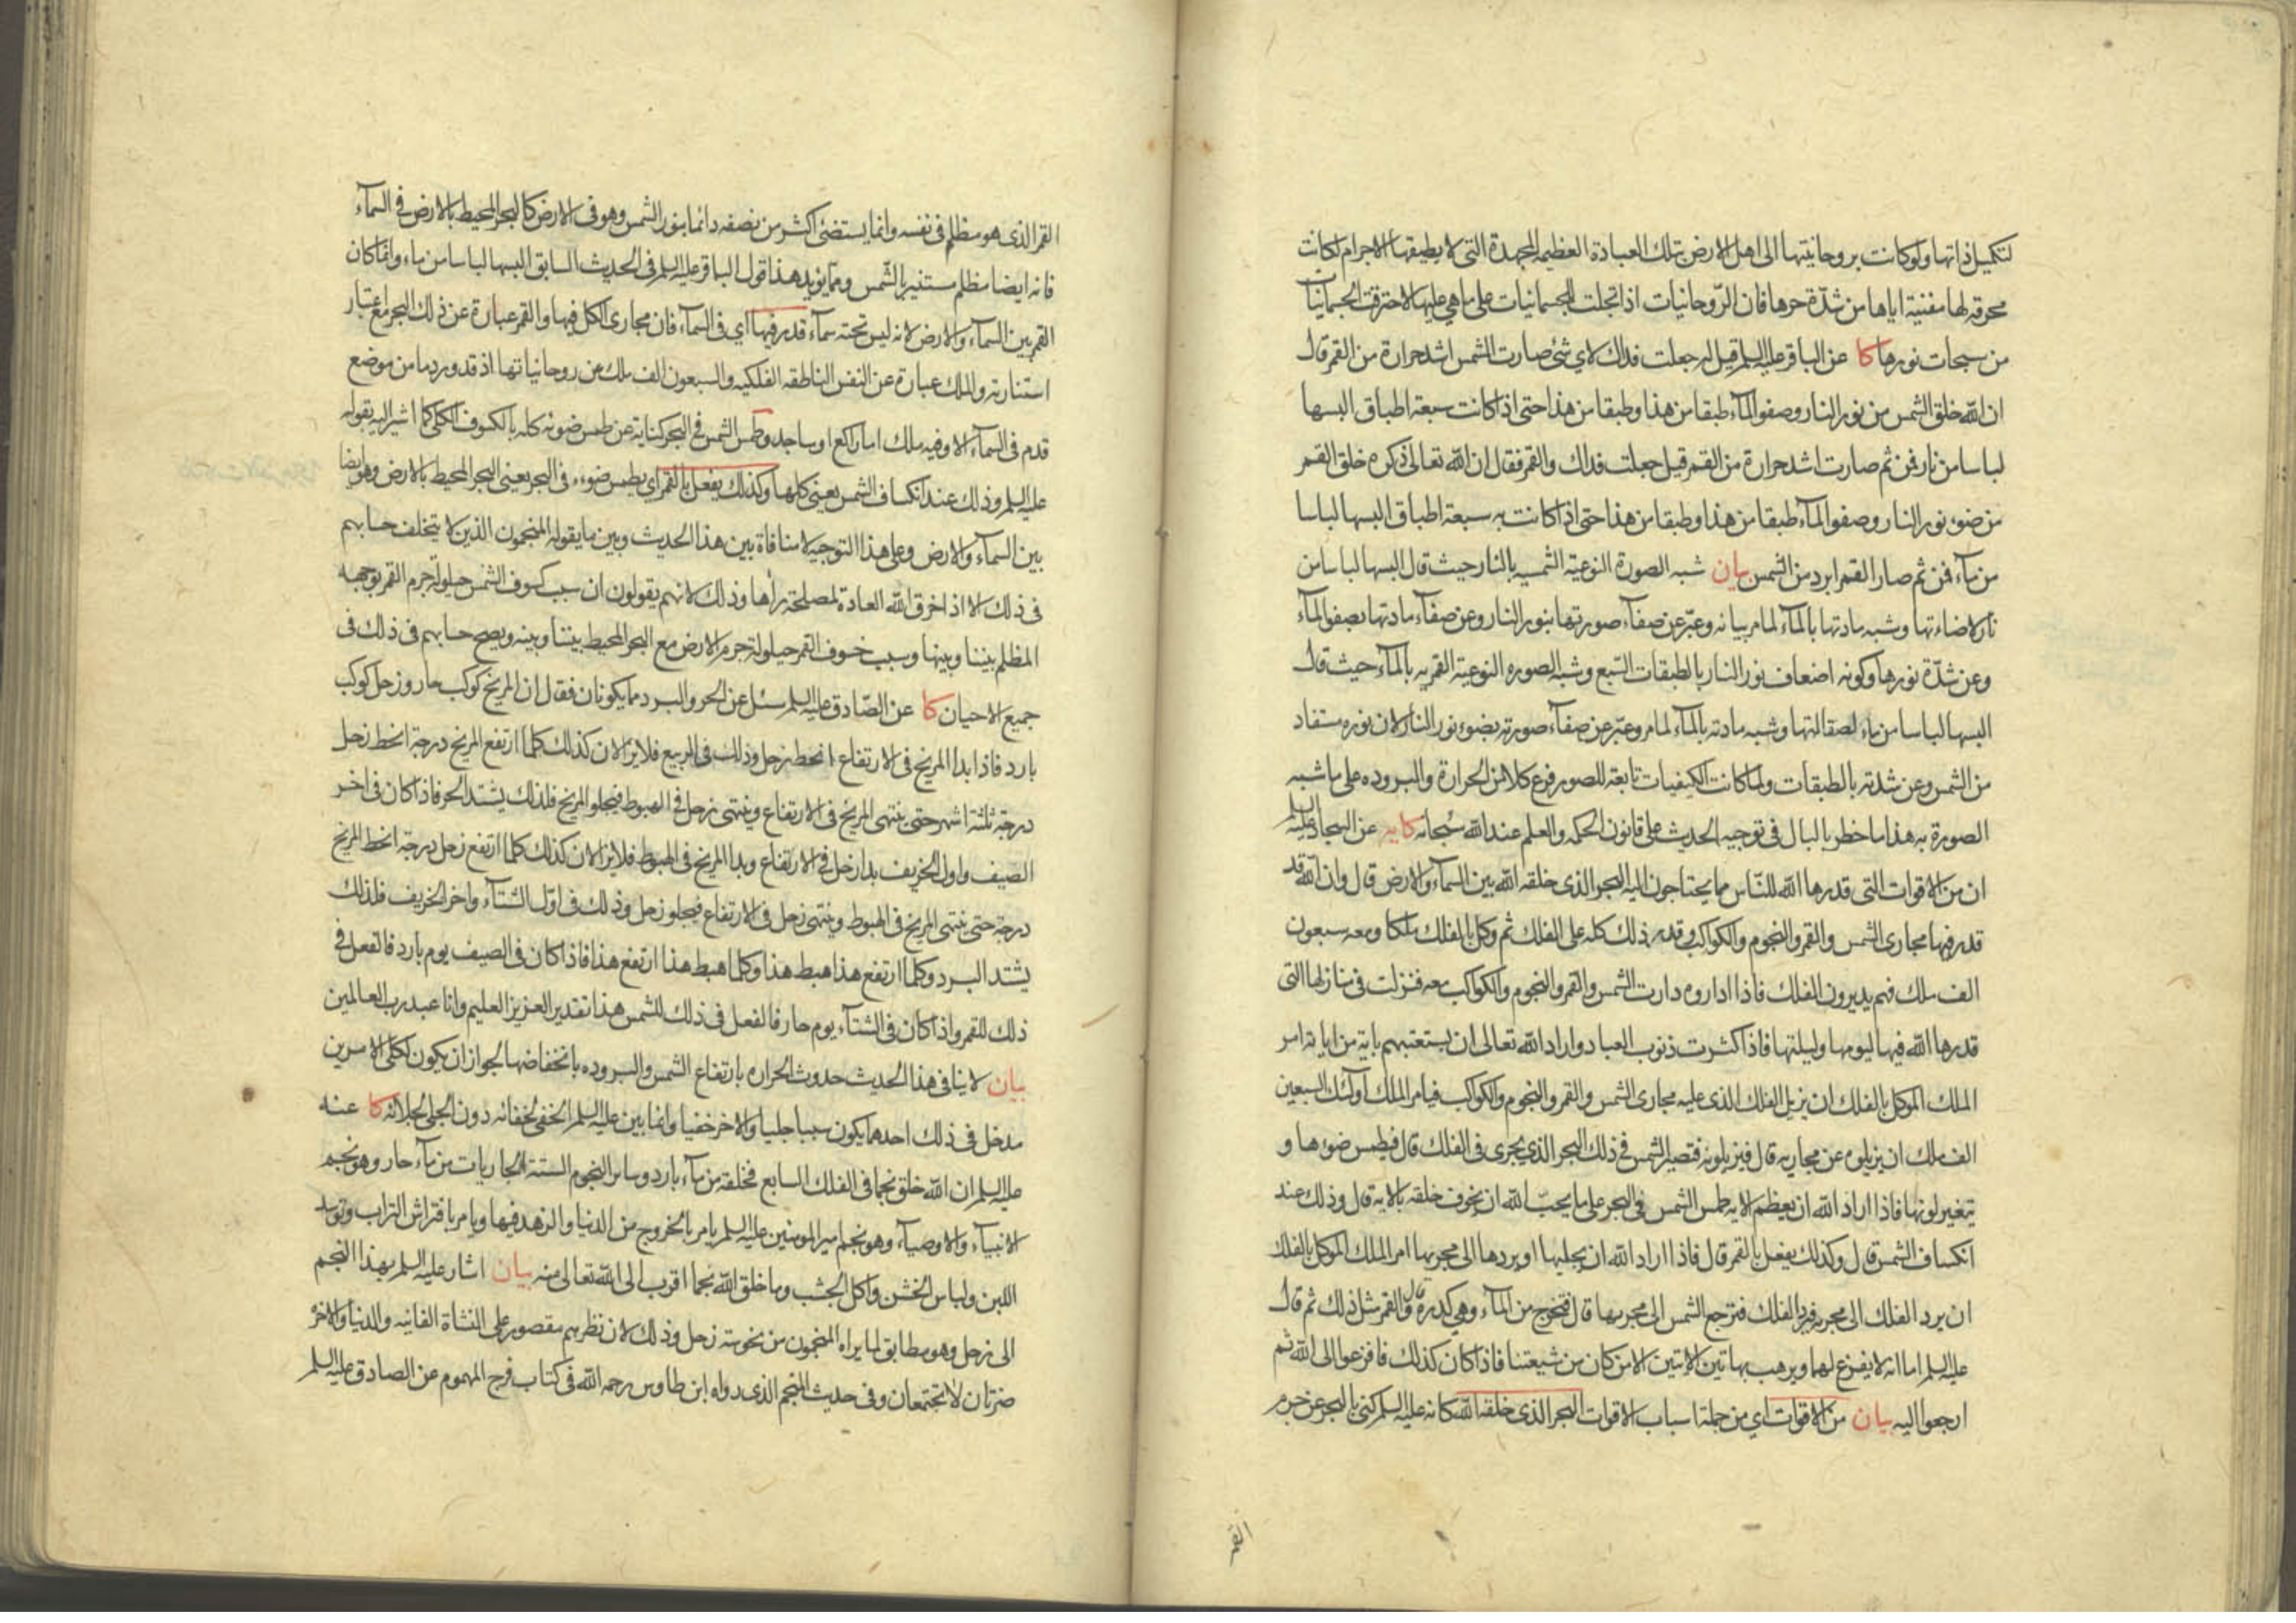 لتكميل ذاتها ولو كانت بروحانيتها الى اهل الارض بتلك العبادة العظيمه المجهدة التى لا يطيقها الاجرام لكانت
محرقة لها مفنية اياها من شدّة حرها فان الرّوحانيات اذا تجلت للجسمانيات على ما هي عليها لاحترقت الجسمانيات
من سبحات نورها كا عن الباقر عليه السلم قيل له جعلت فداك لاي شئ صارت الشمس اشد حرارة من القمر قال
ان الله خلق الشمس من نور النار وصفو المآء طبقا من هذا وطبقا من هذا حتى اذا كانت سبعة اطباق البسها
لباسا من نار فمن ثم صارت اشد حرارة من القمر قيل جعلت فداك والقمر فقال ان الله تعالى ذكره خلق القمر
من ضوء نور النار وصفو المآء طبقا من هذا وطبقا من هذا حتى اذا كانت به سبعة اطباق البسها لباسا
من مآء فمن ثم صار القمر ابرد من الشمس بيان شبه الصورة النوعية الشمسيه بالنار حيث قال البسها لباسا من
نار لاضاءتها وشبه مادتها بالمآء لما مر بيانه وعبّر عن صفآء صورتها بنور النار وعن صفآء مادتها بصفو المآء
وعن شدّة نورها وكونه اضعاف نور النار بالطبقات السّبع وشبه الصوره النوعية القمريه بالمآء حيث قال
البسها لباسا من ماء لصقالتها وشبه مادته بالمآء لما مر وعبّر عن صفآء صورته بضوء نور النار لان نوره مستفاد
من الشمس وعن شدته بالطبقات ولما كانت الكيفيات تابعة للصور فرع كلا من الحرارة والبروده على ما شبه
الصورة به هذا ما خطر بالبال فى توجيه الحديث على قانون الحكمه والعلم عند الله سُبحانه كا يه عن السجاد عليه السلم
ان من الاقوات التى قدرها الله للنّاس مما يحتاجون اليه البحر الذى خلقه الله بين السمآء والارض قال وان الله قد
قدر فيها مجارى الشمس والقمر والنجوم والكواكب وقدر ذلك كله على الفلك ثم وكل بالفلك ملكا ومعه سبعون
الف ملك فهم يديرون الفلك فاذا اداروه دارت الشمس والقمر والنجوم والكواكب معه فنزلت فى منازلها التى
قدرها الله فيها ليومها وليلتها فاذا كثرت ذنوب العباد واراد الله تعالى ان يستعتبهم باية من اياته امر
الملك الموكل بالفلك ان يزيل الفلك الذى عليه مجارى الشمس والقمر والنجوم والكواكب فيامر الملك اولئك السبعين
الف ملك ان يزيلوه عن مجاريه قال فيزيلونه فتصير الشمس فى ذلك البحر الذى يجرى فى الفلك قال فيطمس ضوءها و
يتغير لونها فاذا اراد الله ان يعظم الايه طمس الشمس فى البحر على ما يحبّ الله ان يخوف خلقه بالايه قال وذلك عند
انكساف الشمس قال وكذلك يفعل بالقمر قال فاذا اراد الله ان يجليها او يردها الى مجريها امر الملك الموكل بالفلك
ان يرد الفلك الى مجريه فيرد الفلك فترجع الشمس الى مجريها قال فتخرج من المآء وهي كدرة قال والقمر مثل ذلك ثم قال
عليه السلم اما انه لا يفزع لهما ويرهب بهاتين الايتين الا من كان من شيعتنا فاذا كان كذلك فافزعوا الى الله ثم
ارجعوا اليه بيان من الاقوات اي من جملة اسباب الاقوات البحر الذى خلقه الله كانه عليه السلم كنى بالبحر عن جرم
القمر
القمر الذى هو مظلم فى نفسه وانما يستضئ اكثر من نصفه دائما بنور الشمس وهو فى الارض كالبحر المحيط بالارض فى السمآء
فانه ايضا مظلم مستنير بالشّمس ومما يؤيد هذا قول الباقر عليه السلم فى الحديث السابق البسها لباسا من ماء وانما كان
القمر بين السمآء والارض لانه ليس تحته سمآء قدر فيها اي فى السمآء فان مجارى الكل فيها والقمر عبارة عن ذلك البحر مع اعتبار
استنارته والملك عبارة عن النفس الناطقه الفلكيه والسبعون الف ملك عن روحانياتها اذ قد ورد ما من موضع
قدم فى السمآء الا وفيه ملك اما راكع او ساجد وطمس الشمس فى البحر كناية عن طمس ضوئه كله بالكسوف الكلى كما اشير اليه بقوله
عليه السلم وذلك عند انكساف الشمس يعنى كلها وكذلك يفعل بالقمر اي يطمس ضوءه فى البحر يعنى البحر المحيط بالارض وهو ايضا
بين السمآء والارض وعلى هذا التوجيه لا منافاة بين هذا الحديث وبين ما يقوله المنجمون الذين لا يتخلف حسابهم
فى ذلك الا اذا خرق الله العادة لمصلحة يرٰاها وذلك لانهم يقولون ان سبب كسوف الشمس حيلولة جرم القمر بوجهه
المظلم بيننا وبينها وسبب خسوف القمر حيلولة جرم الارض مع البحر المحيط بيننا وبينه ويصح حسابهم فى ذلك فى
جميع الاحيان كا عن الصّادق عليه السلم سئل عن الحر والبرد مما يكونان فقال ان المريخ كوكب حار وزحل كوكب
بارد فاذا بدا المريخ فى الارتفاع انحط زحل وذلك فى الربيع فلا يزالان كذلك كلما ارتفع المريخ درجة انحط زحل
درجة ثلثة اشهر حتى ينتهى المريخ فى الارتفاع وينتهى زحل فى الهبوط فيجلو المريخ فلذلك يشتد الحر فاذا كان فى اخر
الصيف واول الخريف بدا زحل فى الارتفاع وبدا المريخ فى الهبوط فلا يزالان كذلك كلما ارتفع زحل درجة انحط المريخ
درجة حتى ينتهى المريخ فى الهبوط وينتهى زحل فى الارتفاع فيجلو زحل وذلك فى اوّل الشتآء واخر الخريف فلذلك
يشتد البرد وكلما ارتفع هذا هبط هذا وكلما هبط هذا ارتفع هذا فاذا كان فى الصيف يوم بارد فالفعل فى
ذلك للقمر واذا كان فى الشتآء يوم حار فالفعل فى ذلك للشمس هذا تقدير العزيز العليم وانا عبد رب العالمين
بيان لا ينافى هذا الحديث حدوث الحراره بارتفاع الشمس والبروده بانخفاضها لجواز ان يكون لكلى الامرين
مدخل فى ذلك احدهما يكون سببا جليا والاخر خفيا وانما بين عليه السلم الخفى لخفائه دون الجلى لجلائه كا عنه
عليه السلم ان الله خلق نجما فى الفلك السابع فخلقه من مآء بارد وسائر النجوم الستة الجاريات من مآء حار وهو نجم
الانبيآء والاوصيآء وهو نجم امير المومنين عليه السلم يامر بالخروج من الدنيا والزهد فيها ويامر بافتراش التراب وتوسد
اللبن ولباس الخشن واكل الجشب وما خلق الله نجما اقرب الى الله تعالى منه بيان اشار عليه السلم بهذا النجم
الى زحل وهو مطابق لما يراه المنجمون من نحوسة زحل وذلك لان نظرهم مقصور على النشاة الفانيه والدنيا والاخرٰ
ضرتان لا تجتمعان وفى حديث المنجم الذى رواه ابن طاوس رحمه الله فى كتاب فرج المهموم عن الصادق عليه السلم